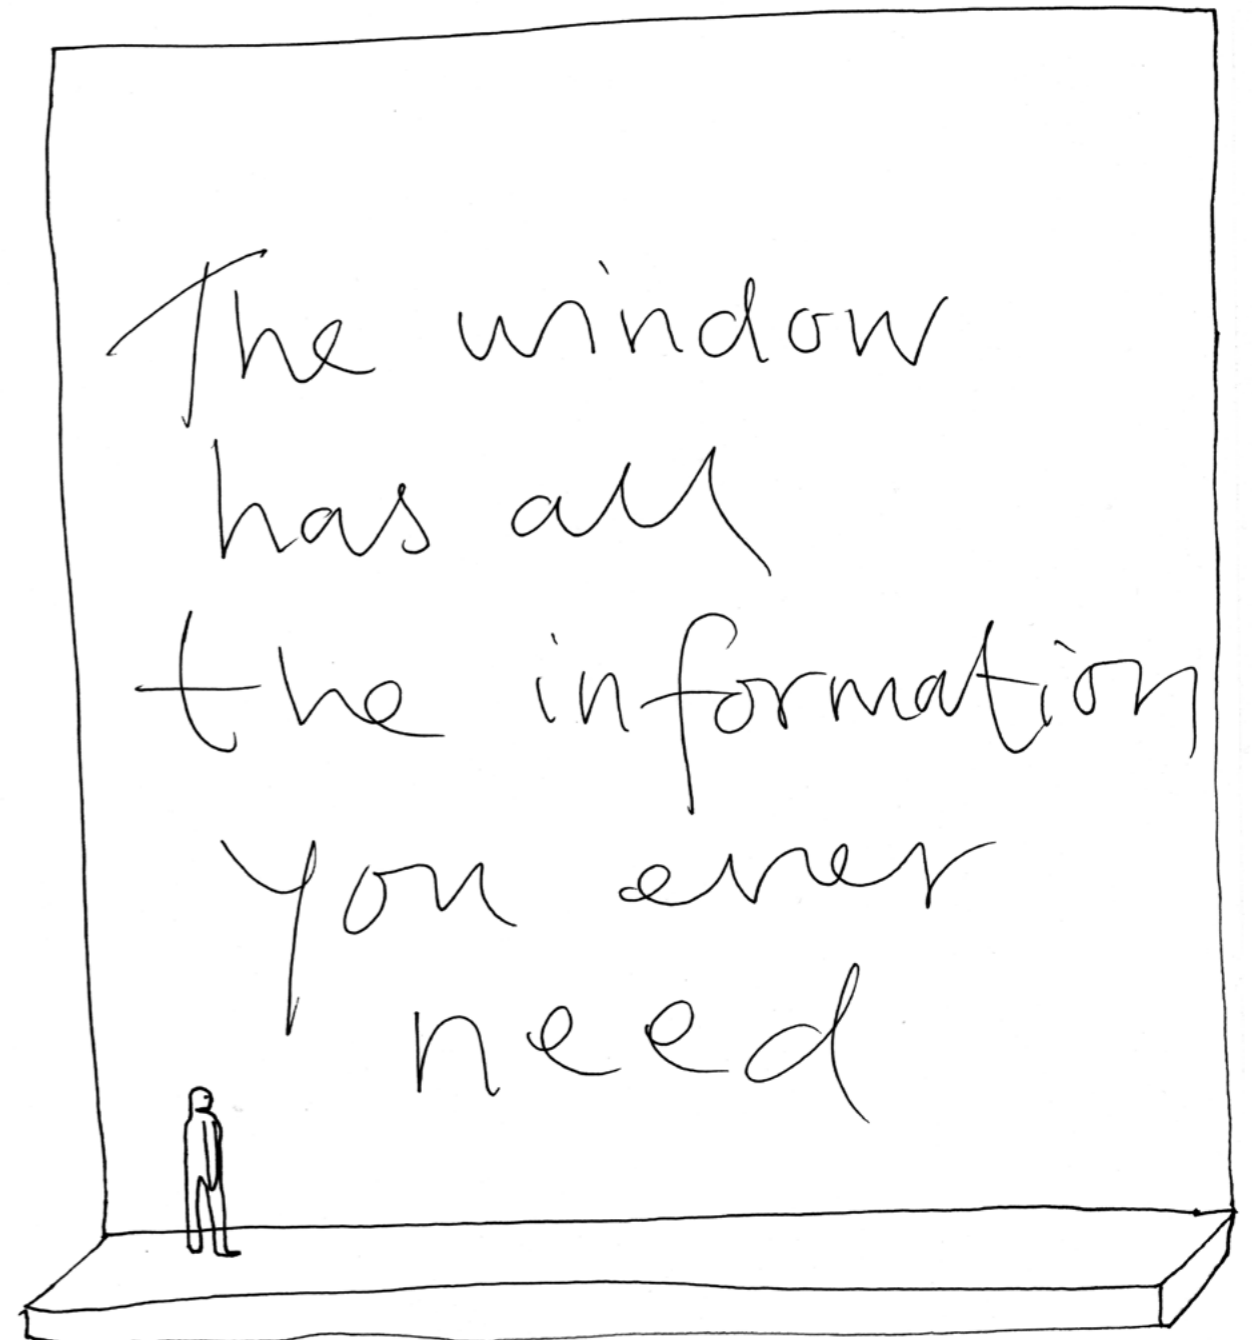 The window
has all
the information
you ever
need